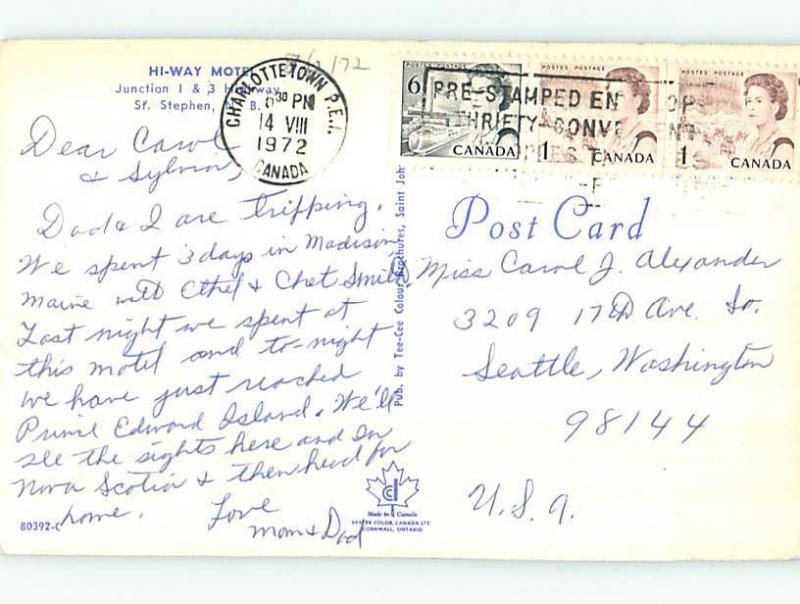 HI-WAY MOTEL
Junction 1 & 3 Highway
St. Stephen, N. B.
CHARLOTTETOWN P.E.I.
30 PM
14 VIII
1972
CANADA
POSTES POSTAGE
6
CANADA
POSTES POSTAGE
1
CANADA
POSTES POSTAGE
1
PRE-STAMPED EN OPS
THRIFTY CONVENIENT
Dear Carol
& Sylvia,
Dad & I are tripping.
We spent 3 days in Madison
Maine with Ethel & Chet Smith.
Last night we spent at
this motel and to-night
we have just reached
Prince Edward Island. We'll
see the sights here and in
Nova Scotia & then head for
home.
Love
Mom & Dad
80392-C
Pub. by Tee-Cee Colour Brochures, Saint John
Post Card
Miss Carol J. Alexander
3209 17th Ave. So.
Seattle, Washington
98144
U.S.A.
Made in Canada
COLOR, CANADA LTD
CORNWALL, ONTARIO